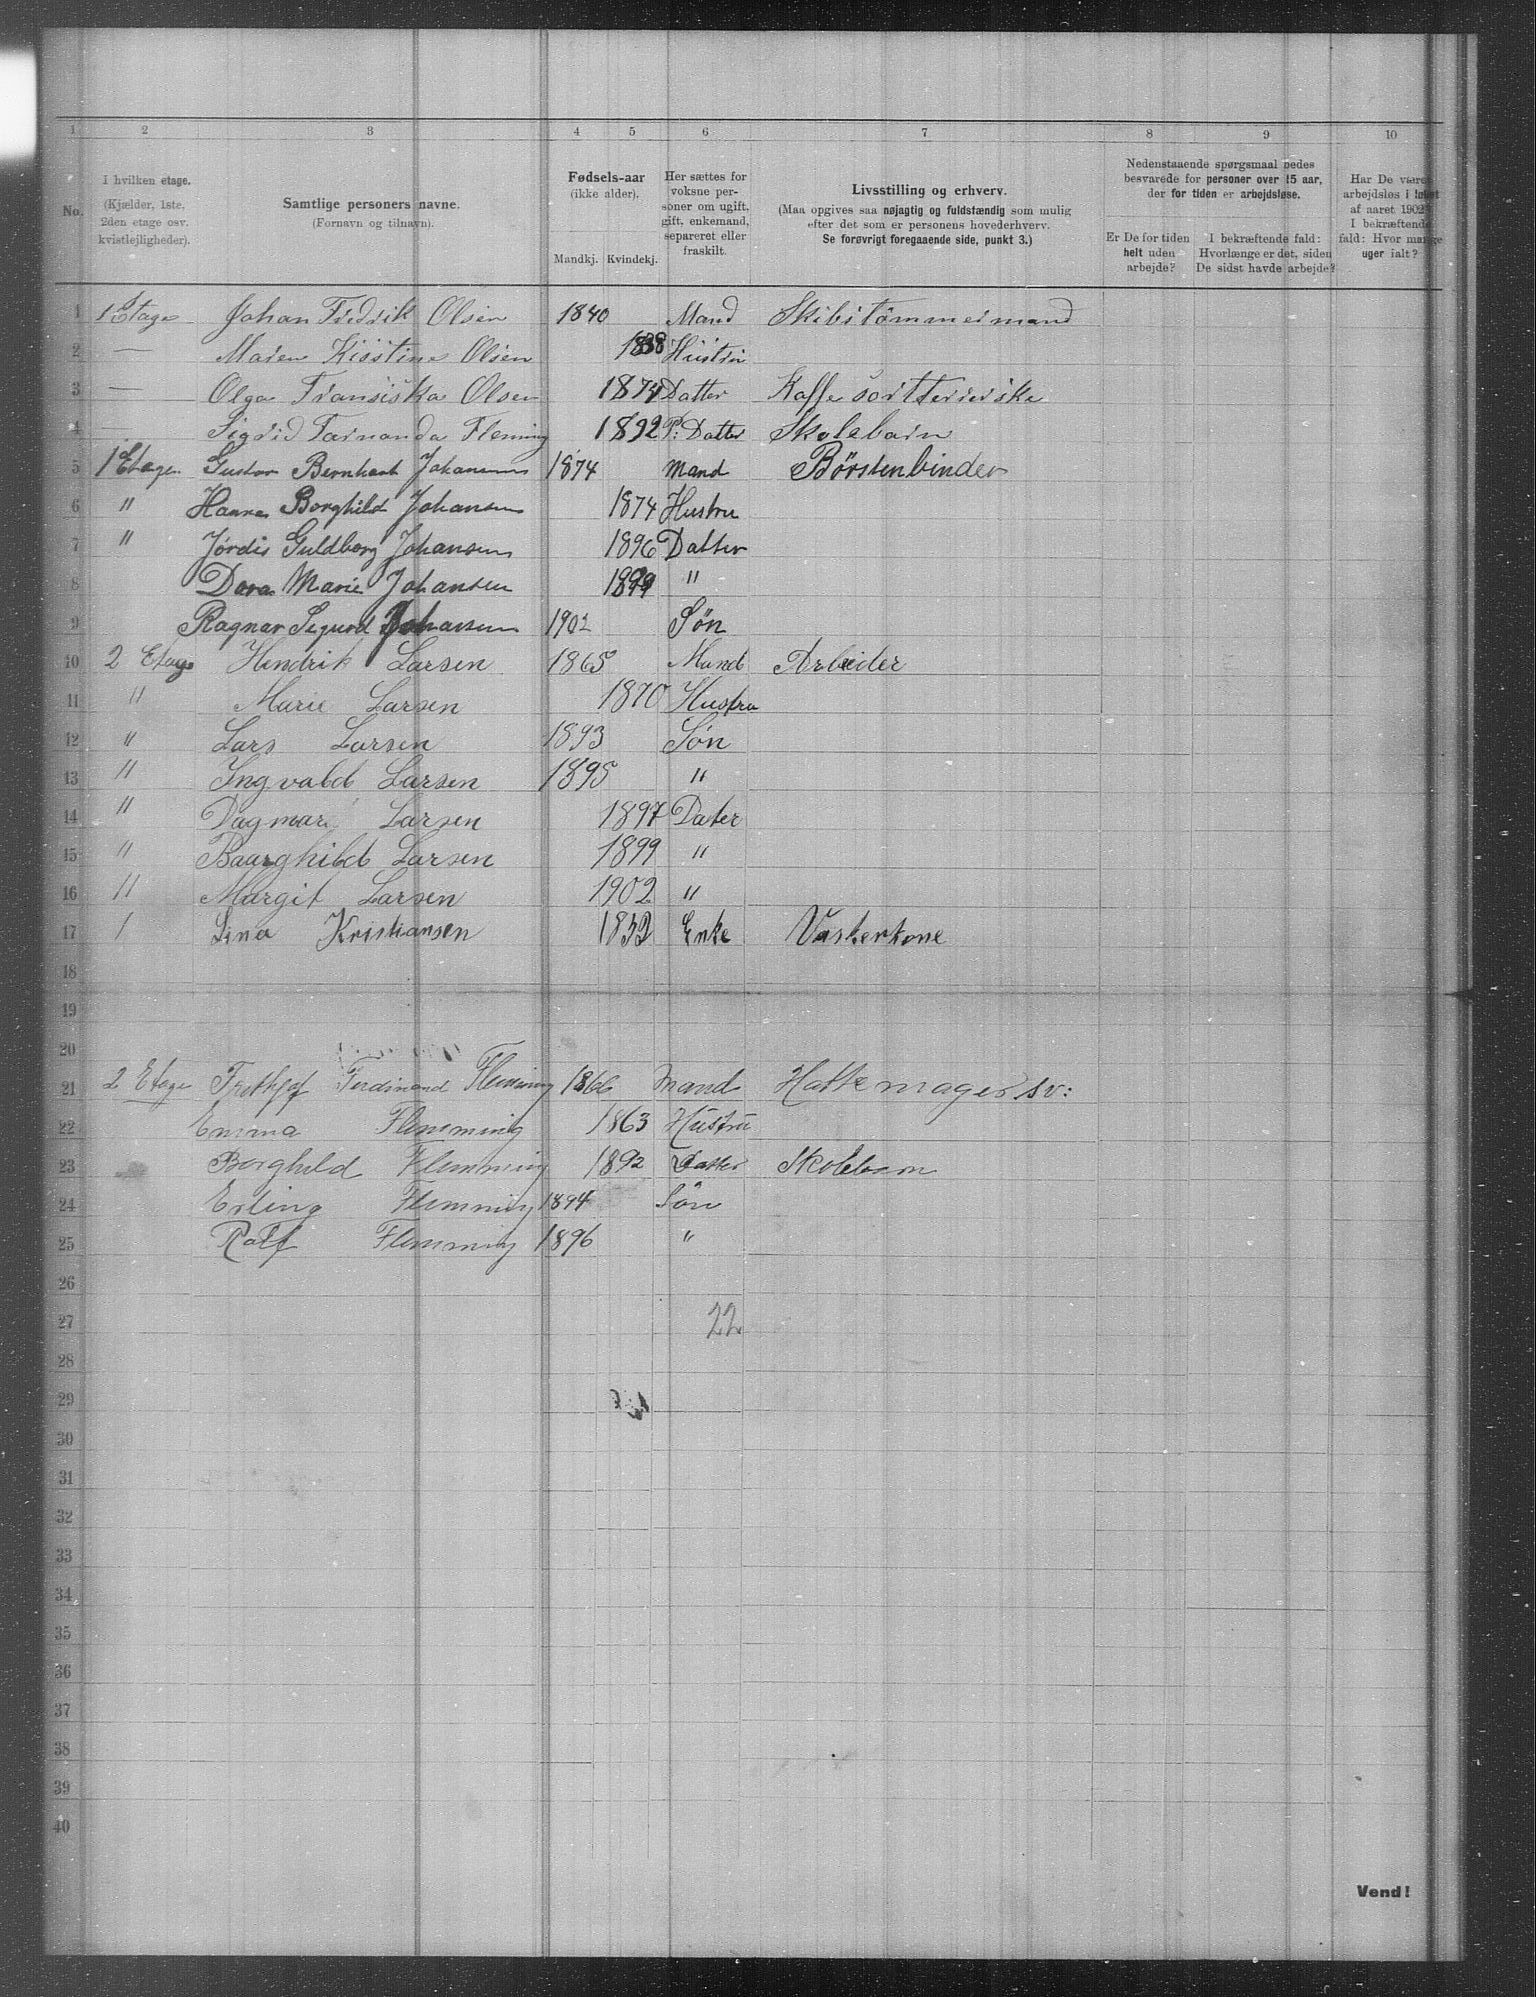 1 2 3 4 5 6 7 8 9 10
No.
I hvilken etage.
(Kjælder, 1ste,
2den etage osv.
kvistlejligheder).
Samtlige personers navne.
(Fornavn og tilnavn).
Fødsels-aar
(ikke alder).
Mandkj. Kvindekj.
Her sættes for
voksne per-
soner om ugift,
gift, enkemand,
separeret eller
fraskilt.
Livsstilling og erhverv.
(Maa opgives saa nøjagtig og fuldstændig som mulig
efter det som er personens hovederhverv.
Se forøvrigt foregaaende side, punkt 3.)
Nedenstaaende spørgsmaal bedes
besvarede for personer over 15 aar,
der for tiden er arbejdsløse.
Er De for tiden
helt uden
arbejde?
I bekræftende fald:
Hvorlænge er det, siden
De sidst havde arbejde?
Har De været
arbejdsløs i løbet
af aaret 1902?
I bekræftende
fald: Hvor mange
uger ialt?
1 1 Etage Johan Fredrik Olsen 1840 Mand Skibstømmermand
2 — Maren Kisstine Olsen 1838 Hustru
3 — Olga Fransiska Olsen 1874 Datter Kaffe sortterierske
4 Sigrid Farnanda Fleming 1892 P: Datter Skolebarn
5 1 Etage Gustav Bernhart Johansen 1874 Mand Børstenbinder
6 " Hanna Borghild Johansen 1874 Hustru
7 " Jørdis Guldborg Johansen 1896 Datter
8 Dora Marie Johansen 1899 "
9 Ragnar Sigurd Johansen 1902 Søn
10 2 Etage Hendrik Larsen 1865 Mand Arbeider
11 " Marie Larsen 1870 Hustru
12 " Lars Larsen 1893 Søn
13 " Ingvald Larsen 1895 "
14 " Dagmar Larsen 1897 Dater
15 " Baarghild Larsen 1899 "
16 " Margit Larsen 1902 "
17 1 Lina Kristiansen Enke Vaskerkone
18
19
20
21 2 Etage Ferdinand Flemming 1866 Mand Hattemager sv:
22 Emma Flemming 1863 Hustru
23 Borghild Flemming 1892 Datter Skolebarn
24 Erling Flemming 1894 Søn
25 Rolf Flemming 1896 "
26
27 22
28
29
30
31
32
33
34
35
36
37
38
39
40
Vend!